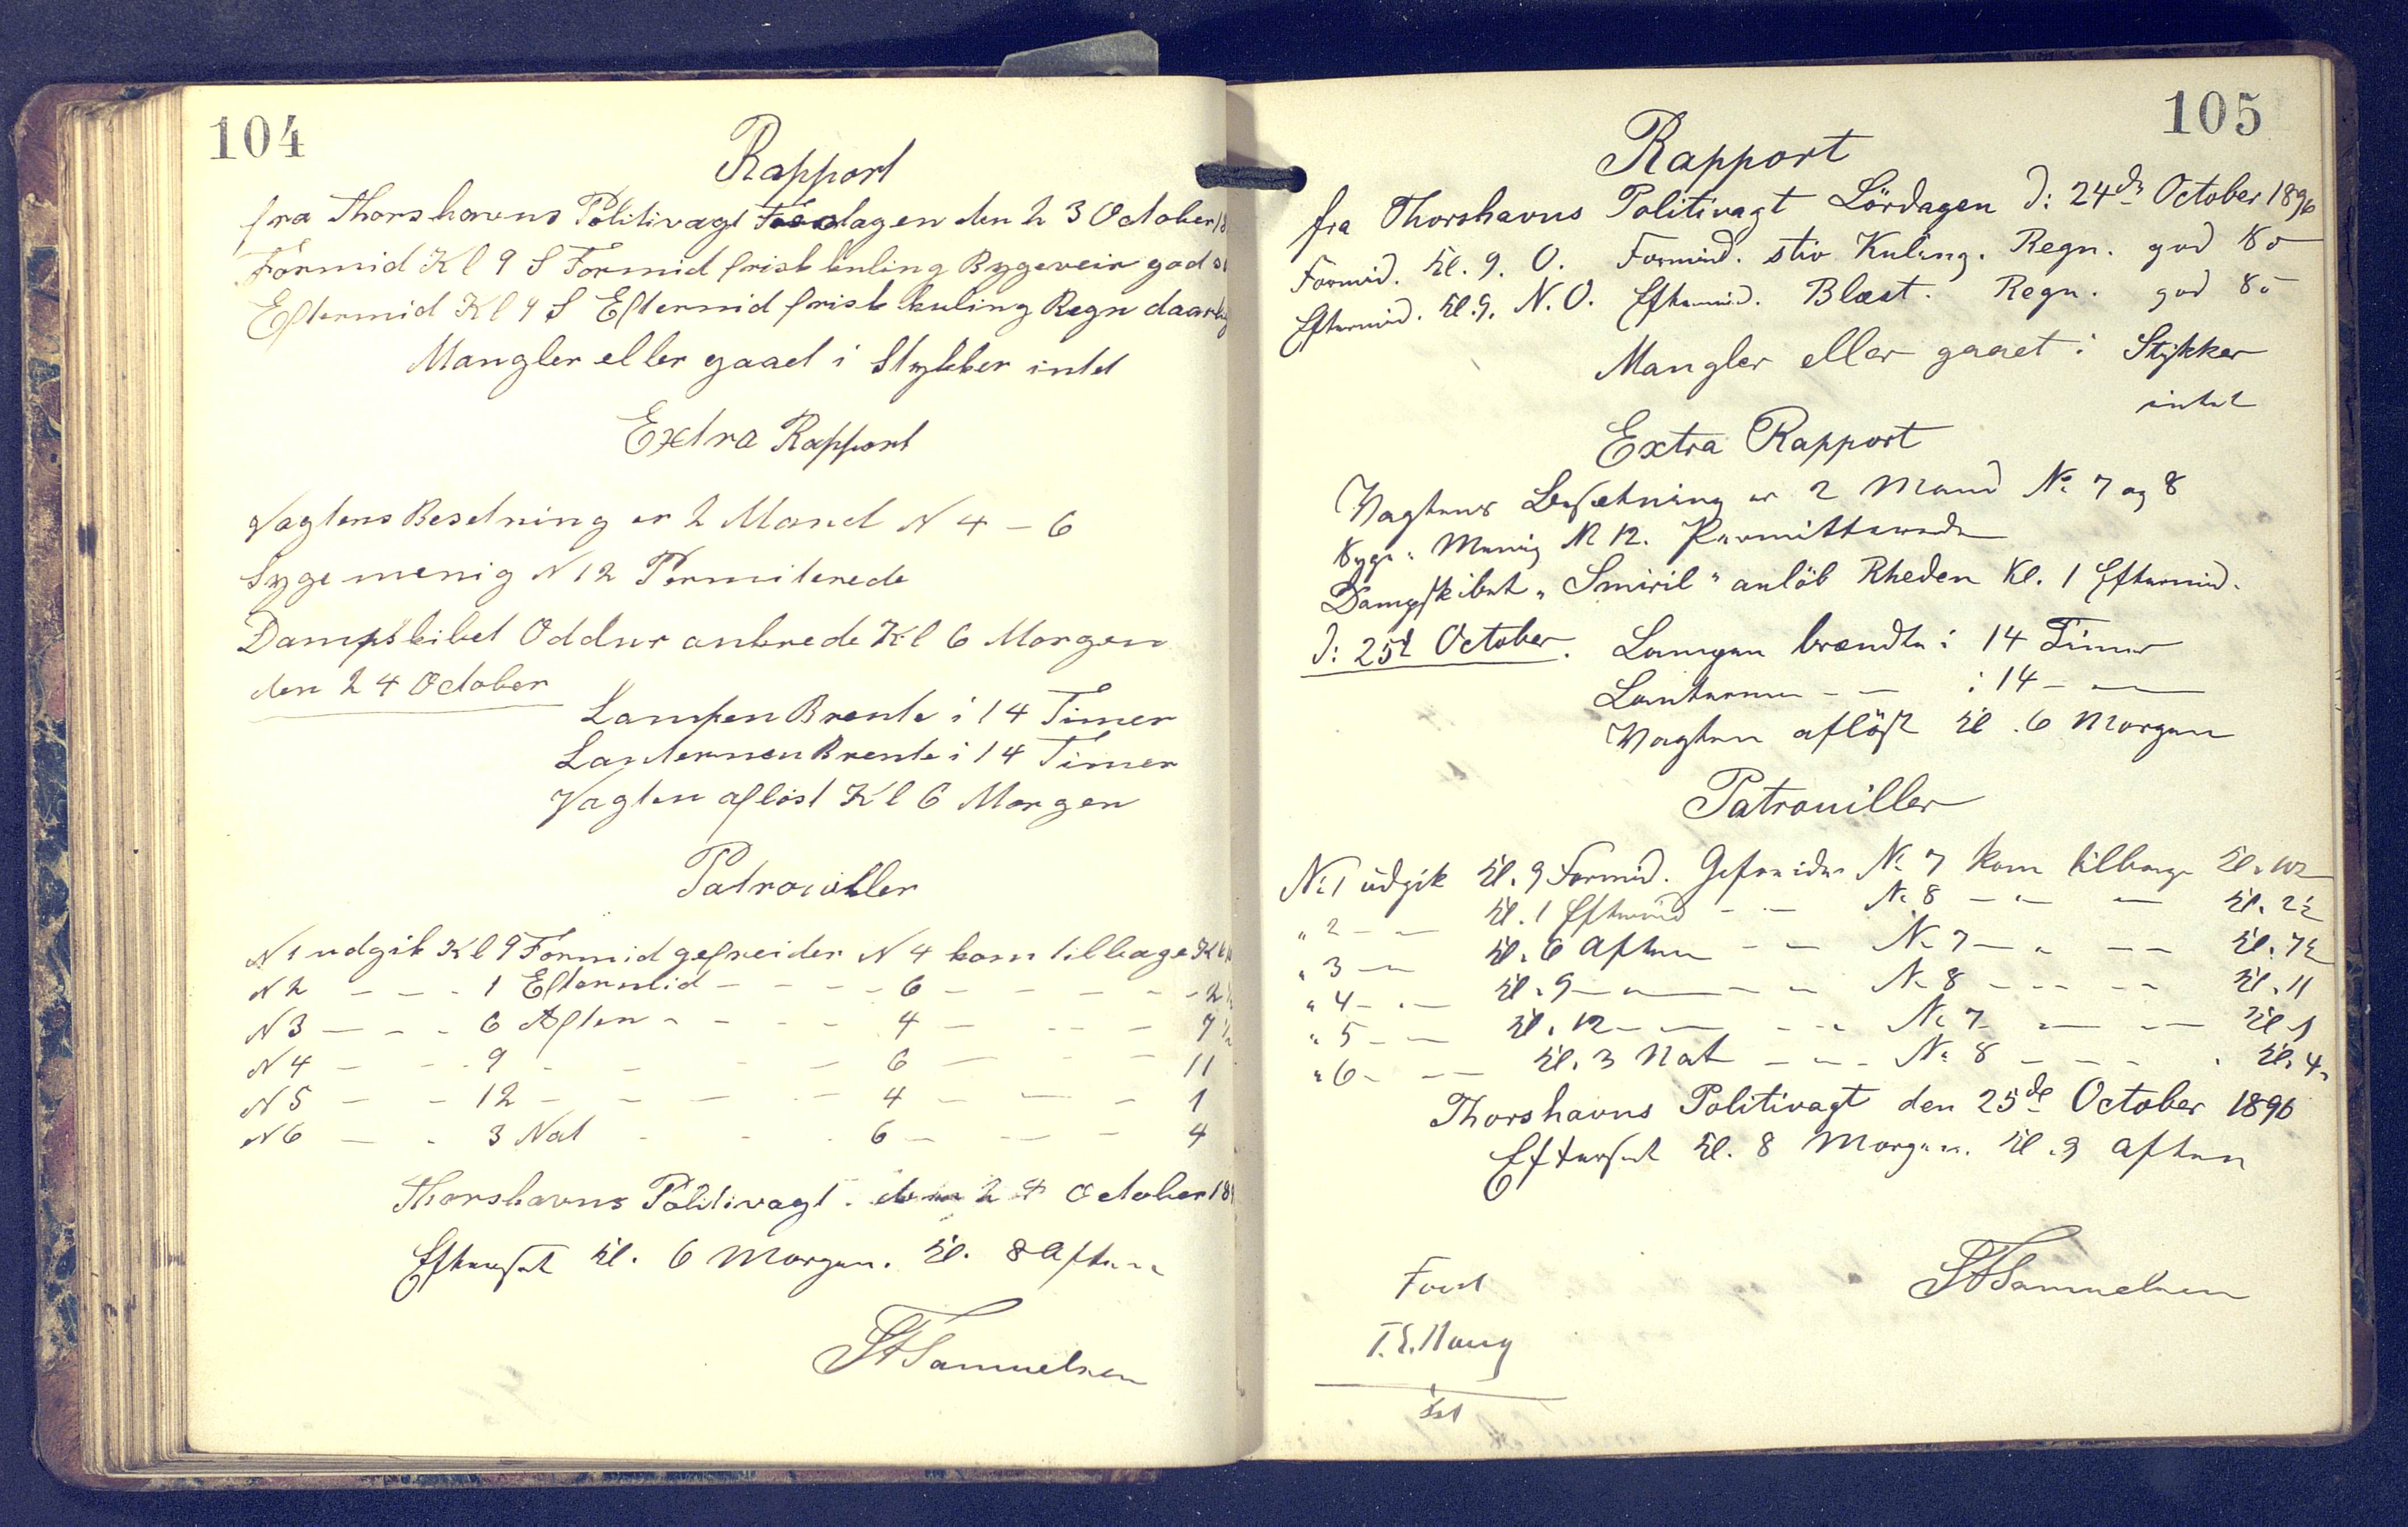 104
Rapport
fra Thorshavns Politivagt Fredagen den 23 October 18
Formid Kl 9 S Formid frisk kuling Bygeveir god
Eftermid Kl 9 S Eftermid frisk kuling Regn daarlig
Mangler eller gaaet i Stykker intet
Extra Rapport
Vagtens Besetning er 2 Mand N 4 – 6
Syge menig N 12 Permiterede
Dampskibet Oddur ankrede Kl 6 Morgen
den 24 October
Lampen Brente i 14 Timer
Lanternen Brente i 14 Timer
Vagten aflöst Kl 6 Morgen
Patrouiller
N 1 udgik Kl 9 Formid gefreider N 4 kom tilbage Kl
N 2 – – – 1 Eftermid – – – – 6 – – – – – 2½
N 3 – – – 6 Aften – – – – 4 – – – – 7½
N 4 – – – 9 – – – – 6 – – – 11
N 5 – – 12 – – – – – 4 – – – 1
N 6 – – 3 Nat – – – 6 – – – – 4
Thorshavns Politivagt den 24 October 18
Efterset Kl. 6 Morgen. Kl. 8 Aften
Samuelsen
105
Rapport
fra Thorshavns Politivagt Lördagen D: 24de October 1896
Formid. Kl. 9. O. Formid. stiv Kuling. Regn. god
Eftermid. Kl. 9. N.O. Eftermid. Blæst. Regn. god
Mangler eller gaaet i Stykker
intet
Extra Rapport
Vagtens Besætning er 2 Mand No 7 og 8
Syge: Menig N 12. Permitterede
Dampskibet "Smiril" anlöb Rheden Kl. 1 Eftermid.
D: 25d October. Lampen brændte i 14 Timer
Lanternen – – i 14 – –
Vagten aflöst Kl. 6 Morgen
Patrouiller
No 1 udgik Kl. 9 Formid. Gefreider No 7 kom tilbage Kl. 10½
" 2 – – Kl. 1 Eftermid – – No 8 – " – Kl. 2½
" 3 – – Kl. 6 Aften – – No 7 – " – – Kl. 7½
" 4 – – Kl. 9 – – – – No 8 – – – – Kl. 11
" 5 – – Kl. 12 – – – – No 7 – – – Kl. 1
" 6 – – Kl. 3 Nat – – – No 8 – – – Kl. 4
Thorshavns Politivagt den 25de October 1896
Efterset Kl. 8 Morgen. Kl. 9 Aften
Samuelsen